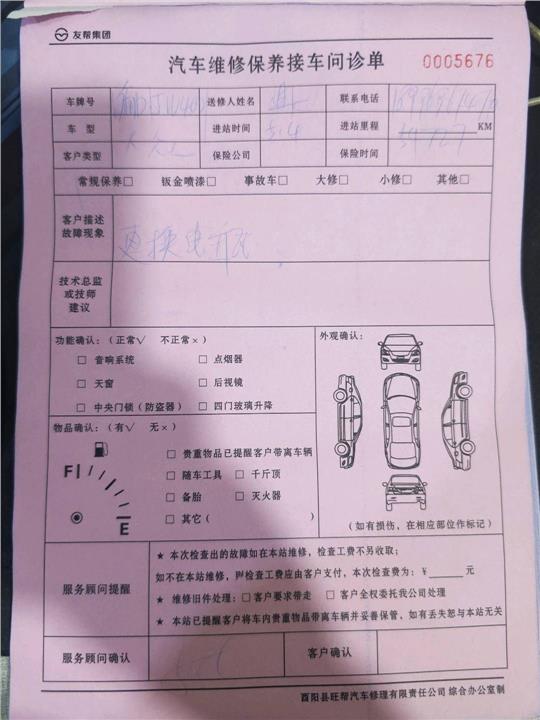 友帮集团
汽车维修保养接车问诊单 0005676
车牌号 送修人姓名 联系电话
车 型 进站时间 5.4 进站里程 KM
客户类型 保险公司 保险时间
常规保养□ 钣金喷漆□ 事故车□ 大修□ 小修□ 其他□
客户描述
故障现象
更换电瓶
技术总监
或技师
建议
功能确认：（正常√ 不正常×）
□ 音响系统 □ 点烟器
□ 天窗 □ 后视镜
□ 中央门锁（防盗器） □ 四门玻璃升降
外观确认：
（如有损伤，在相应部位作标记）
物品确认：（有√ 无×）
F
E
□ 贵重物品已提醒客户带离车辆
□ 随车工具 □ 千斤顶
□ 备胎 □ 灭火器
□ 其它（ ）
服务顾问提醒
★ 本次检查出的故障如在本站维修，检查工费不另收取；
如不在本站维修，则检查工费应由客户支付，本次检查费为：¥______元
★ 维修旧件处理：□ 客户要求带走 □ 客户全权委托我公司处理
★ 本站已提醒客户将车内贵重物品带离车辆并妥善保管，如有丢失恕与本站无关
服务顾问确认 客户确认
酉阳县旺帮汽车修理有限责任公司 综合办公室制